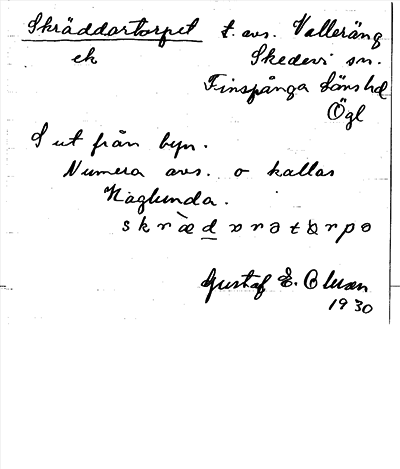 Skräddartorpet t. avs. Valleräng
ek Skedevi sn.
Finspånga länshd
Ögl
S ut från byn.
Numera avs. o kallas
Haglunda.
Gustaf E. Olsson
1930